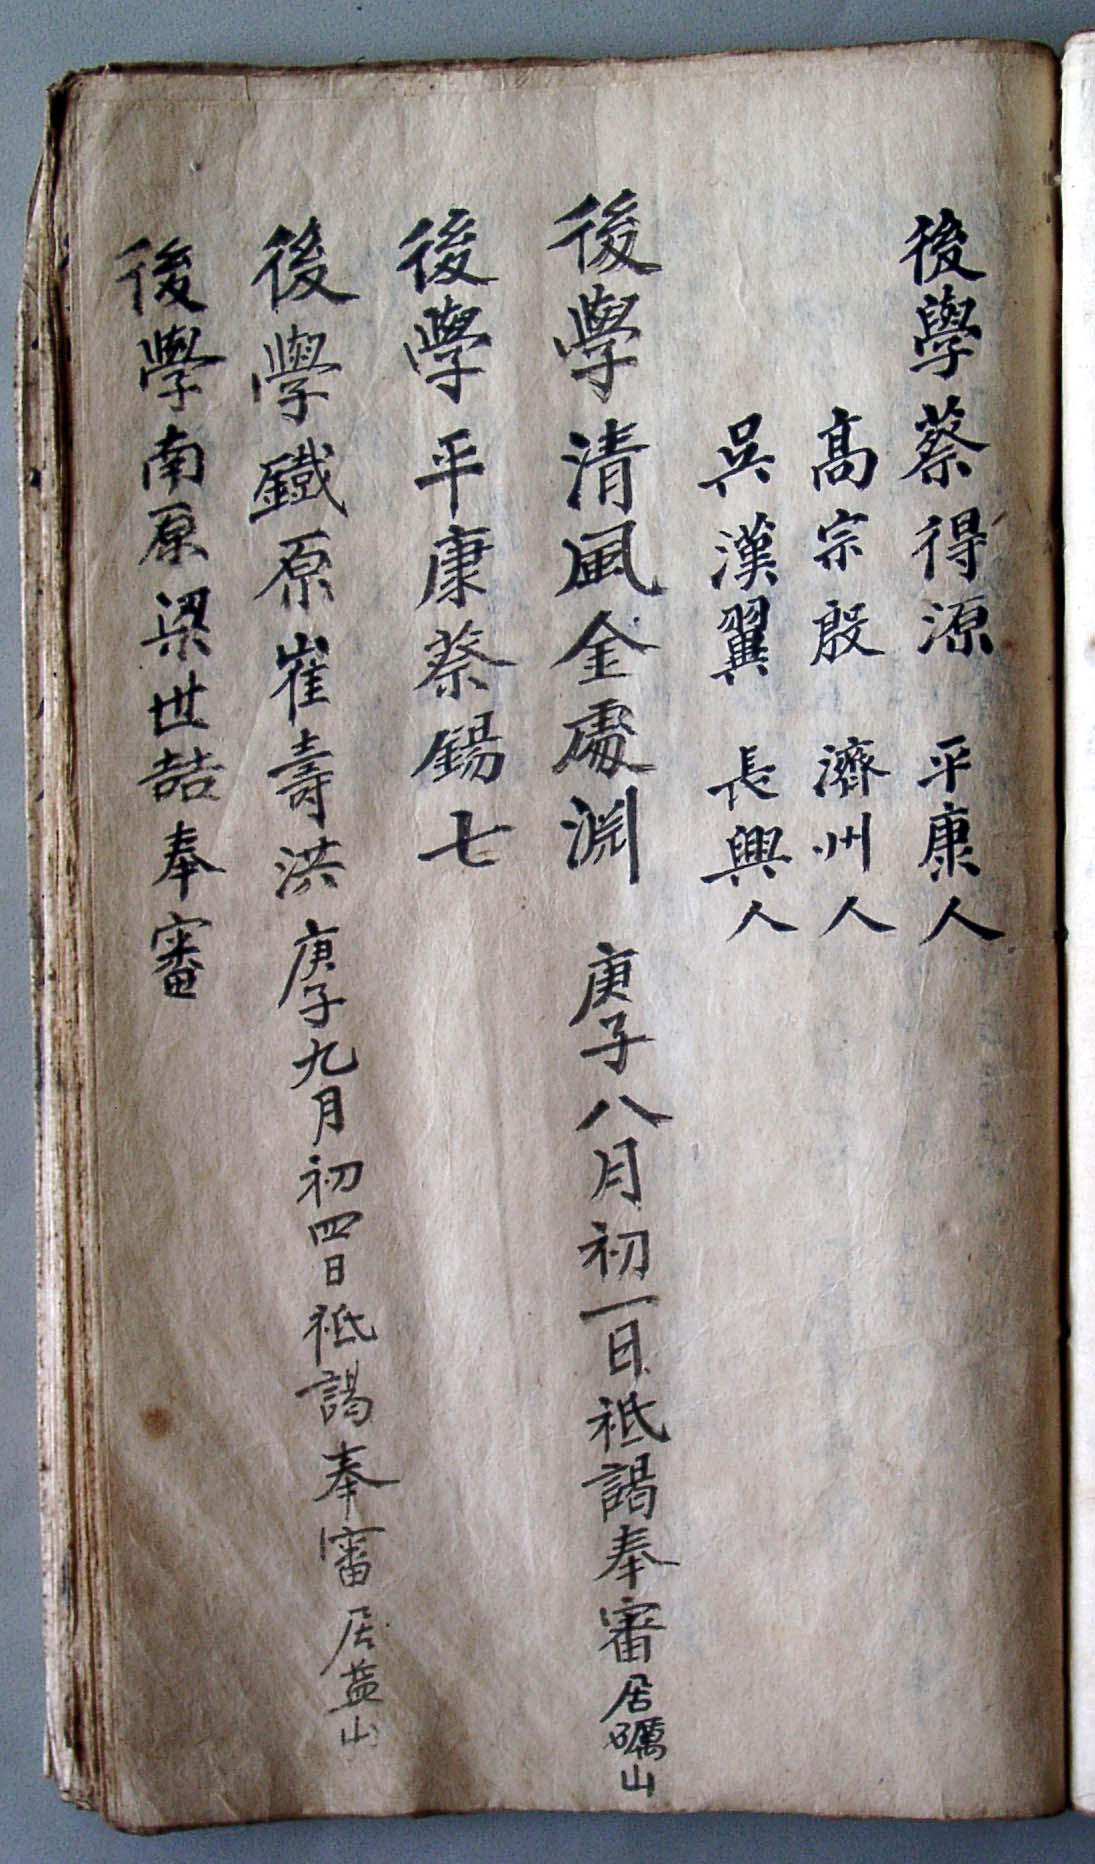 後學蔡得源 平康人
高宗殷 濟州人
吳漢翼 長興人
後學清風金處淵 庚子八月初一日祗謁奉審居礪山
後學平康蔡錫七
後學鐵原崔壽洪 庚子九月初四日祗謁奉審居益山
後學南原梁世喆奉審